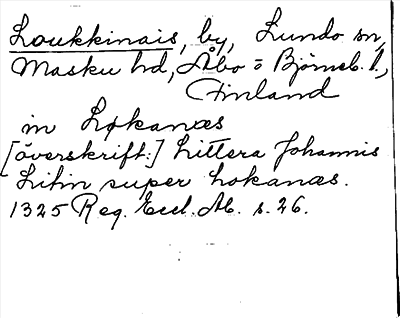 Loukkinais, by, Lundo sn,
Masku hd, Åbo = Björneb. l.,
Finland
in Lokanæs
[överskrift:] Littera Johannis
Litin super Lokanæs.
1325 Reg. Eccl. Ab. s. 26.